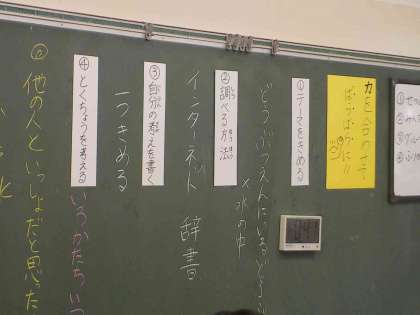 力を合わせて
ばっちばちに!!
①テーマをきめる
どうぶつえんにいるどうぶつ
×水の中
②調べる方法
インターネット 辞書
③自分の考えを書く
一つきめる
④とくちょうを考える
いろ かたち
◎他の人といっしょだと思った